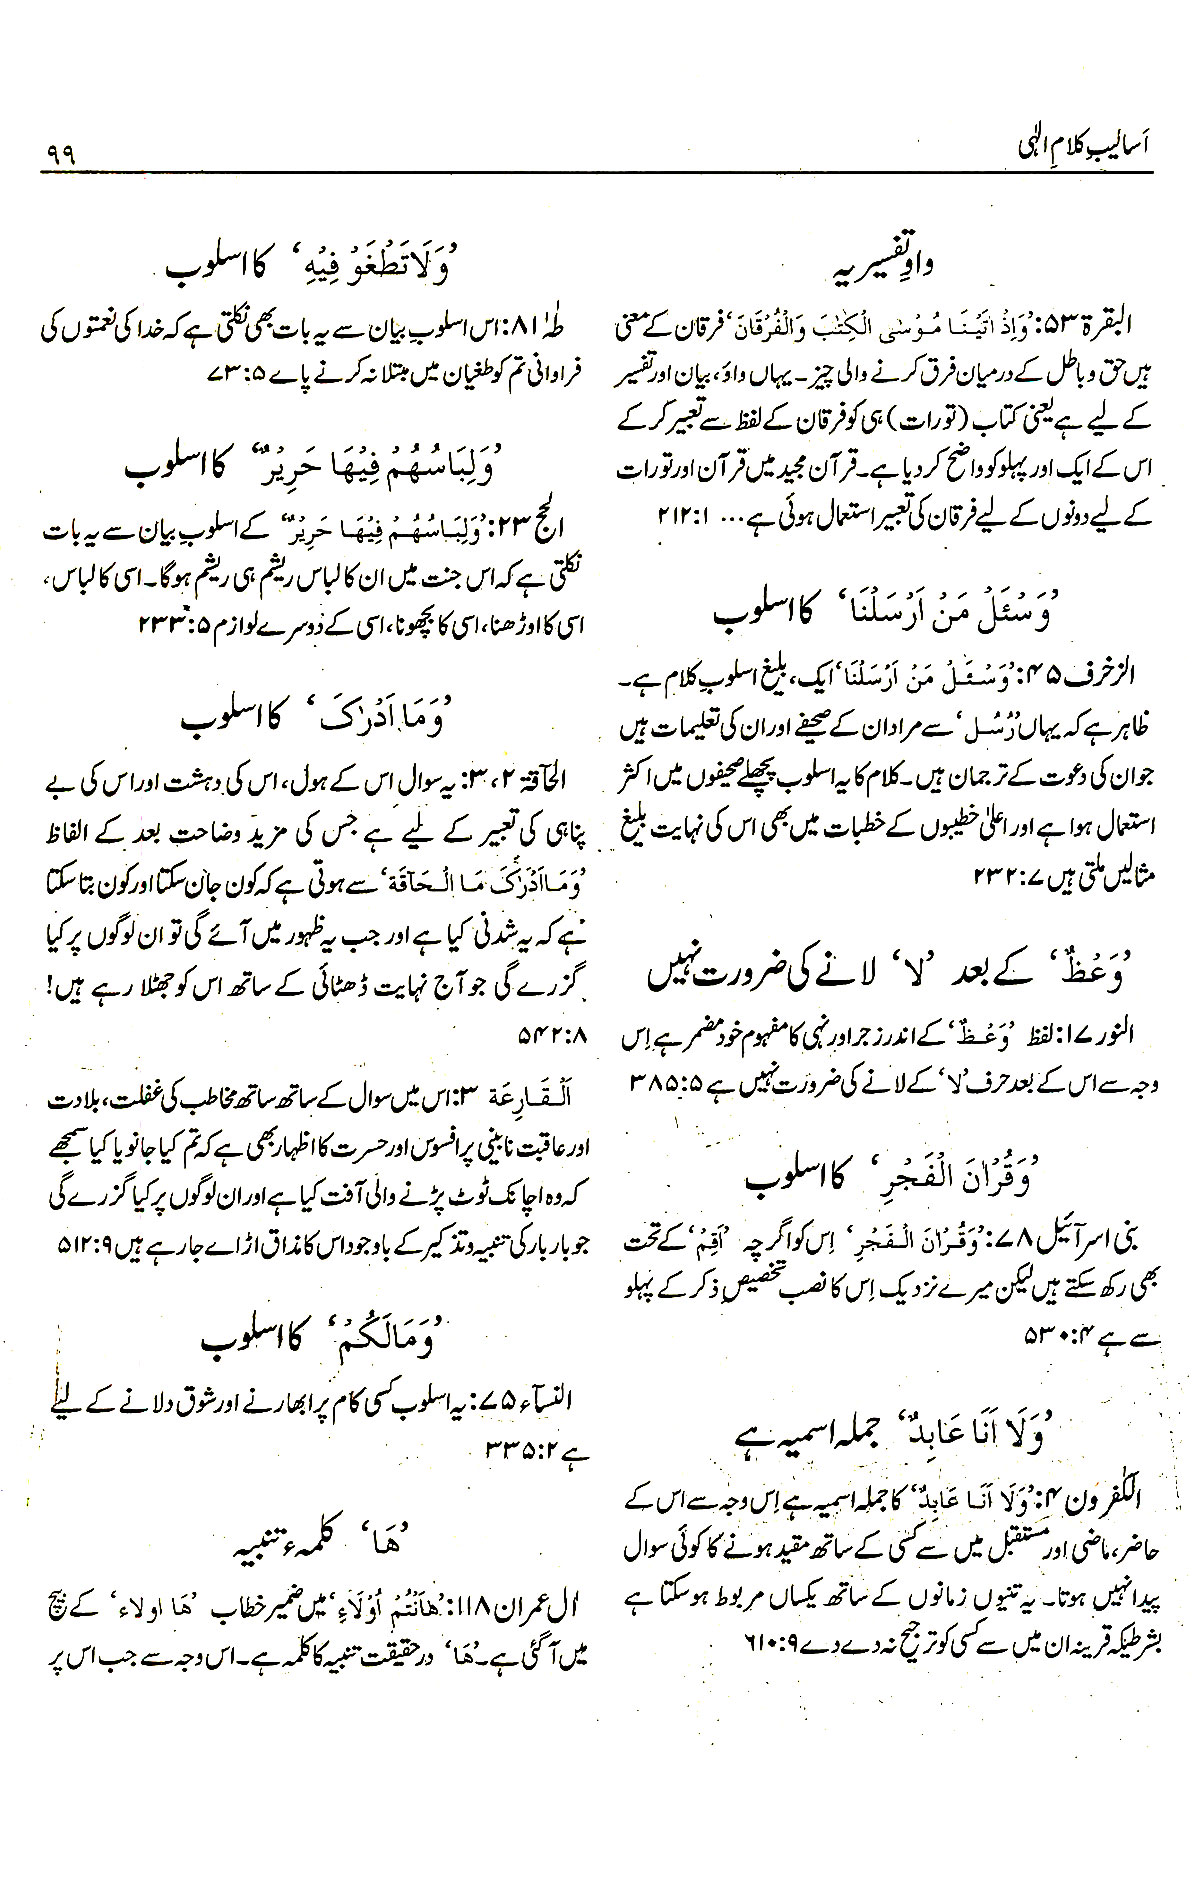 اَسالیبِ کلامِ الٰہی
۹۹
واوِ تفسیریہ
البقرۃ ۵۳: ’وَاِذْ اٰتَیْنَا مُوْسَی الْکِتٰبَ وَالْفُرْقَانَ‘ فرقان کے معنی
ہیں حق و باطل کے درمیان فرق کرنے والی چیز۔ یہاں واؤ، بیان اور تفسیر
کے لیے ہے یعنی کتاب (تورات) ہی کو فرقان کے لفظ سے تعبیر کر کے
اس کے ایک اور پہلو کو واضح کر دیا ہے۔ قرآن مجید میں قرآن اور تورات
کے لیے دونوں کے لیے فرقان کی تعبیر استعمال ہوئی ہے... ۲۱۲:۱
’وَسْئَلْ مَنْ اَرْسَلْنَا‘ کا اسلوب
الزخرف ۴۵: ’وَسْئَلْ مَنْ اَرْسَلْنَا‘ ایک، بلیغ اسلوبِ کلام ہے۔
ظاہر ہے کہ یہاں ’رُسُل‘ سے مراد ان کے صحیفے اور ان کی تعلیمات ہیں
جو ان کی دعوت کے ترجمان ہیں۔ کلام کا یہ اسلوب پچھلے صحیفوں میں اکثر
استعمال ہوا ہے اور اعلیٰ خطیبوں کے خطبات میں بھی اس کی نہایت بلیغ
مثالیں ملتی ہیں ۲۳۲:۷
’وَعْظٌ‘ کے بعد ’لا‘ لانے کی ضرورت نہیں
النور ۱۷: لفظ ’وَعْظٌ‘ کے اندر زجر اور نہی کا مفہوم خود مضمر ہے اِس
وجہ سے اس کے بعد حرف ’لا‘ کے لانے کی ضرورت نہیں ہے ۳۸۵:۵
’وَقُرْاٰنَ الْفَجْرِ‘ کا اسلوب
بنی اسرآئیل ۷۸: ’وَقُرْاٰنَ الْفَجْرِ‘ اِس کو اگرچہ ’اَقِمْ‘ کے تحت
بھی رکھ سکتے ہیں لیکن میرے نزدیک اِس کا نصب تخصیصِ ذکر کے پہلو
سے ہے ۵۳۰:۴
’وَلَا اَنَا عَابِدٌ‘ جملہ اسمیہ ہے
الکٰفرون ۴: ’وَلَا اَنَا عَابِدٌ‘ کا جملہ اسمیہ ہے اِس وجہ سے اس کے
حاضر، ماضی اور مستقبل میں سے کسی کے ساتھ مقید ہونے کا کوئی سوال
پیدا نہیں ہوتا۔ یہ تینوں زمانوں کے ساتھ یکساں مربوط ہو سکتا ہے
بشرطیکہ قرینہ ان میں سے کسی کو ترجیح نہ دے دے ۶۱۰:۹
’وَلَا تَطْغَوْ فِیْہِ‘ کا اسلوب
طٰہٰ ۸۱: اس اسلوبِ بیان سے یہ بات بھی نکلتی ہے کہ خدا کی نعمتوں کی
فراوانی تم کو طغیان میں مبتلا نہ کرنے پاے ۷۳:۵
’وَلِبَاسُھُمْ فِیْھَا حَرِیْرٌ‘ کا اسلوب
الحج ۲۳: ’وَلِبَاسُھُمْ فِیْھَا حَرِیْرٌ‘ کے اسلوبِ بیان سے یہ بات
نکلتی ہے کہ اس جنت میں ان کا لباس ریشم ہی ریشم ہوگا۔ اسی کا لباس،
اسی کا اوڑھنا، اسی کا بچھونا، اسی کے دوسرے لوازم ۲۳۳:۵
’وَمَا اَدْرٰکَ‘ کا اسلوب
الحآقۃ ۲، ۳: یہ سوال اس کے ہول، اس کی دہشت اور اس کی بے
پناہی کی تعبیر کے لیے ہے جس کی مزید وضاحت بعد کے الفاظ
’وَمَا اَدْرٰکَ مَا الْحَآقَۃ‘ سے ہوتی ہے کہ کون جان سکتا اور کون بتا سکتا
ہے کہ یہ شدنی کیا ہے اور جب یہ ظہور میں آئے گی تو ان لوگوں پر کیا
گزرے گی جو آج نہایت ڈھٹائی کے ساتھ اس کو جھٹلا رہے ہیں!
۵۴۲:۸
اَلْقَارِعَۃ ۳: اس میں سوال کے ساتھ ساتھ مخاطب کی غفلت، بلادت
اور عاقبت نابینی پر افسوس اور حسرت کا اظہار بھی ہے کہ تم کیا جانو یا کیا سمجھے
کہ وہ اچانک ٹوٹ پڑنے والی آفت کیا ہے اور ان لوگوں پر کیا گزرے گی
جو بار بار کی تنبیہ و تذکیر کے باوجود اس کا مذاق اڑاے جا رہے ہیں ۵۱۲:۹
’وَمَالَکُمْ‘ کا اسلوب
النسآء ۷۵: یہ اسلوب کسی کام پر ابھارنے اور شوق دلانے کے لیے
ہے ۳۳۵:۲
’ھَا‘ کلمۂ تنبیہ
ال عمران ۱۱۸: ’ھٰاَنْتُمْ اُوْلَاءِ‘ میں ضمیر خطاب ’ھَا اولاء‘ کے بیچ
میں آ گئی ہے۔ ’ھَا‘ درحقیقت تنبیہ کا کلمہ ہے۔ اس وجہ سے جب اس پر